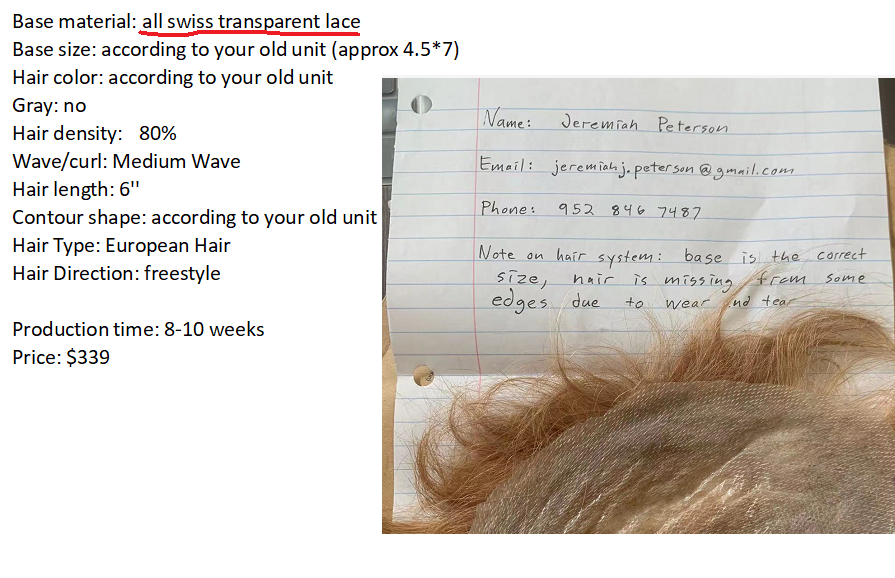 Base material: all swiss transparent lace
Base size: according to your old unit (approx 4.5*7)
Hair color: according to your old unit
Gray: no
Hair density:   80%
Wave/curl: Medium Wave
Hair length: 6"
Contour shape: according to your old unit
Hair Type: European Hair
Hair Direction: freestyle
Production time: 8-10 weeks
Price: $339
Name: Jeremiah Peterson
Email: jeremiahj.peterson@gmail.com
Phone: 952 846 7487
Note on hair system: base is the correct
size, hair is missing from some
edges due to wear and tear